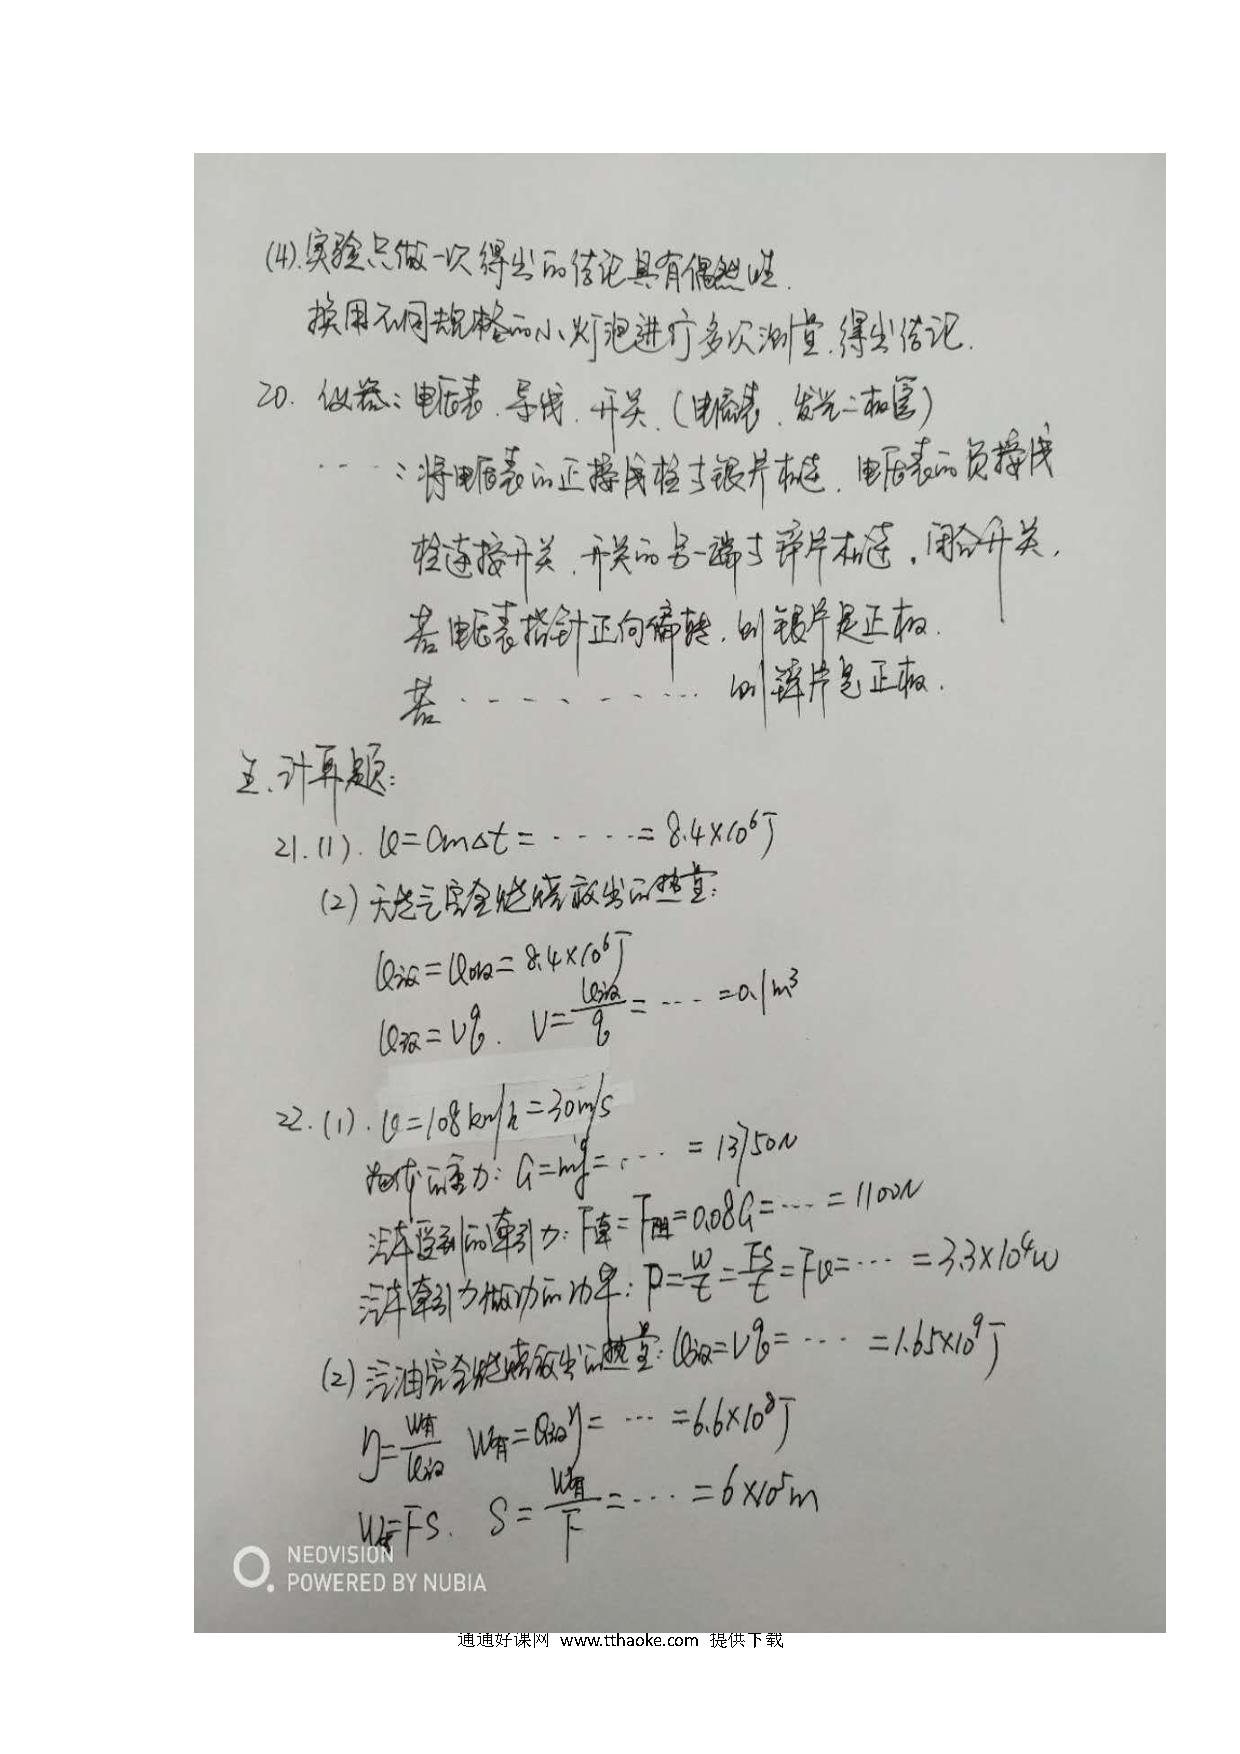 (4).实验只做一次得出的结论具有偶然性.
换用不同规格的小灯泡进行多次测量,得出结论.
20. 仪器:电压表.导线.开关.(电流表.发光二极管)
····:将电压表的正接线柱与银片相连.电压表的负接线
柱连接开关.开关的另一端与锌片相连.闭合开关.
若电压表指针正向偏转.则银片是正极.
若········则锌片是正极.
五.计算题:
21.(1). Q=Cm△t=····=8.4×10⁶J
(2)天然气完全燃烧放出的热量:
Q放=Q吸=8.4×10⁶J
Q放=Vq. V=Q放/q=····=0.1m³
22.(1).v=108km/h=30m/s
物体的重力:G=mg=····=13750N
汽车受到的牵引力:F牵=F阻=0.08G=····=1100N
汽车牵引力做功的功率:P=W/t=FS/t=Fv=···=3.3×10⁴W
(2)汽油完全燃烧放出的热量:Q放=Vq=····=1.65×10⁹J
η=W有/Q放 W有=Q放η=···=6.6×10⁸J
W有=FS. S=W有/F=····=6×10⁵m
NEOVISION
POWERED BY NUBIA
通通好课网 www.tthaoke.com 提供下载